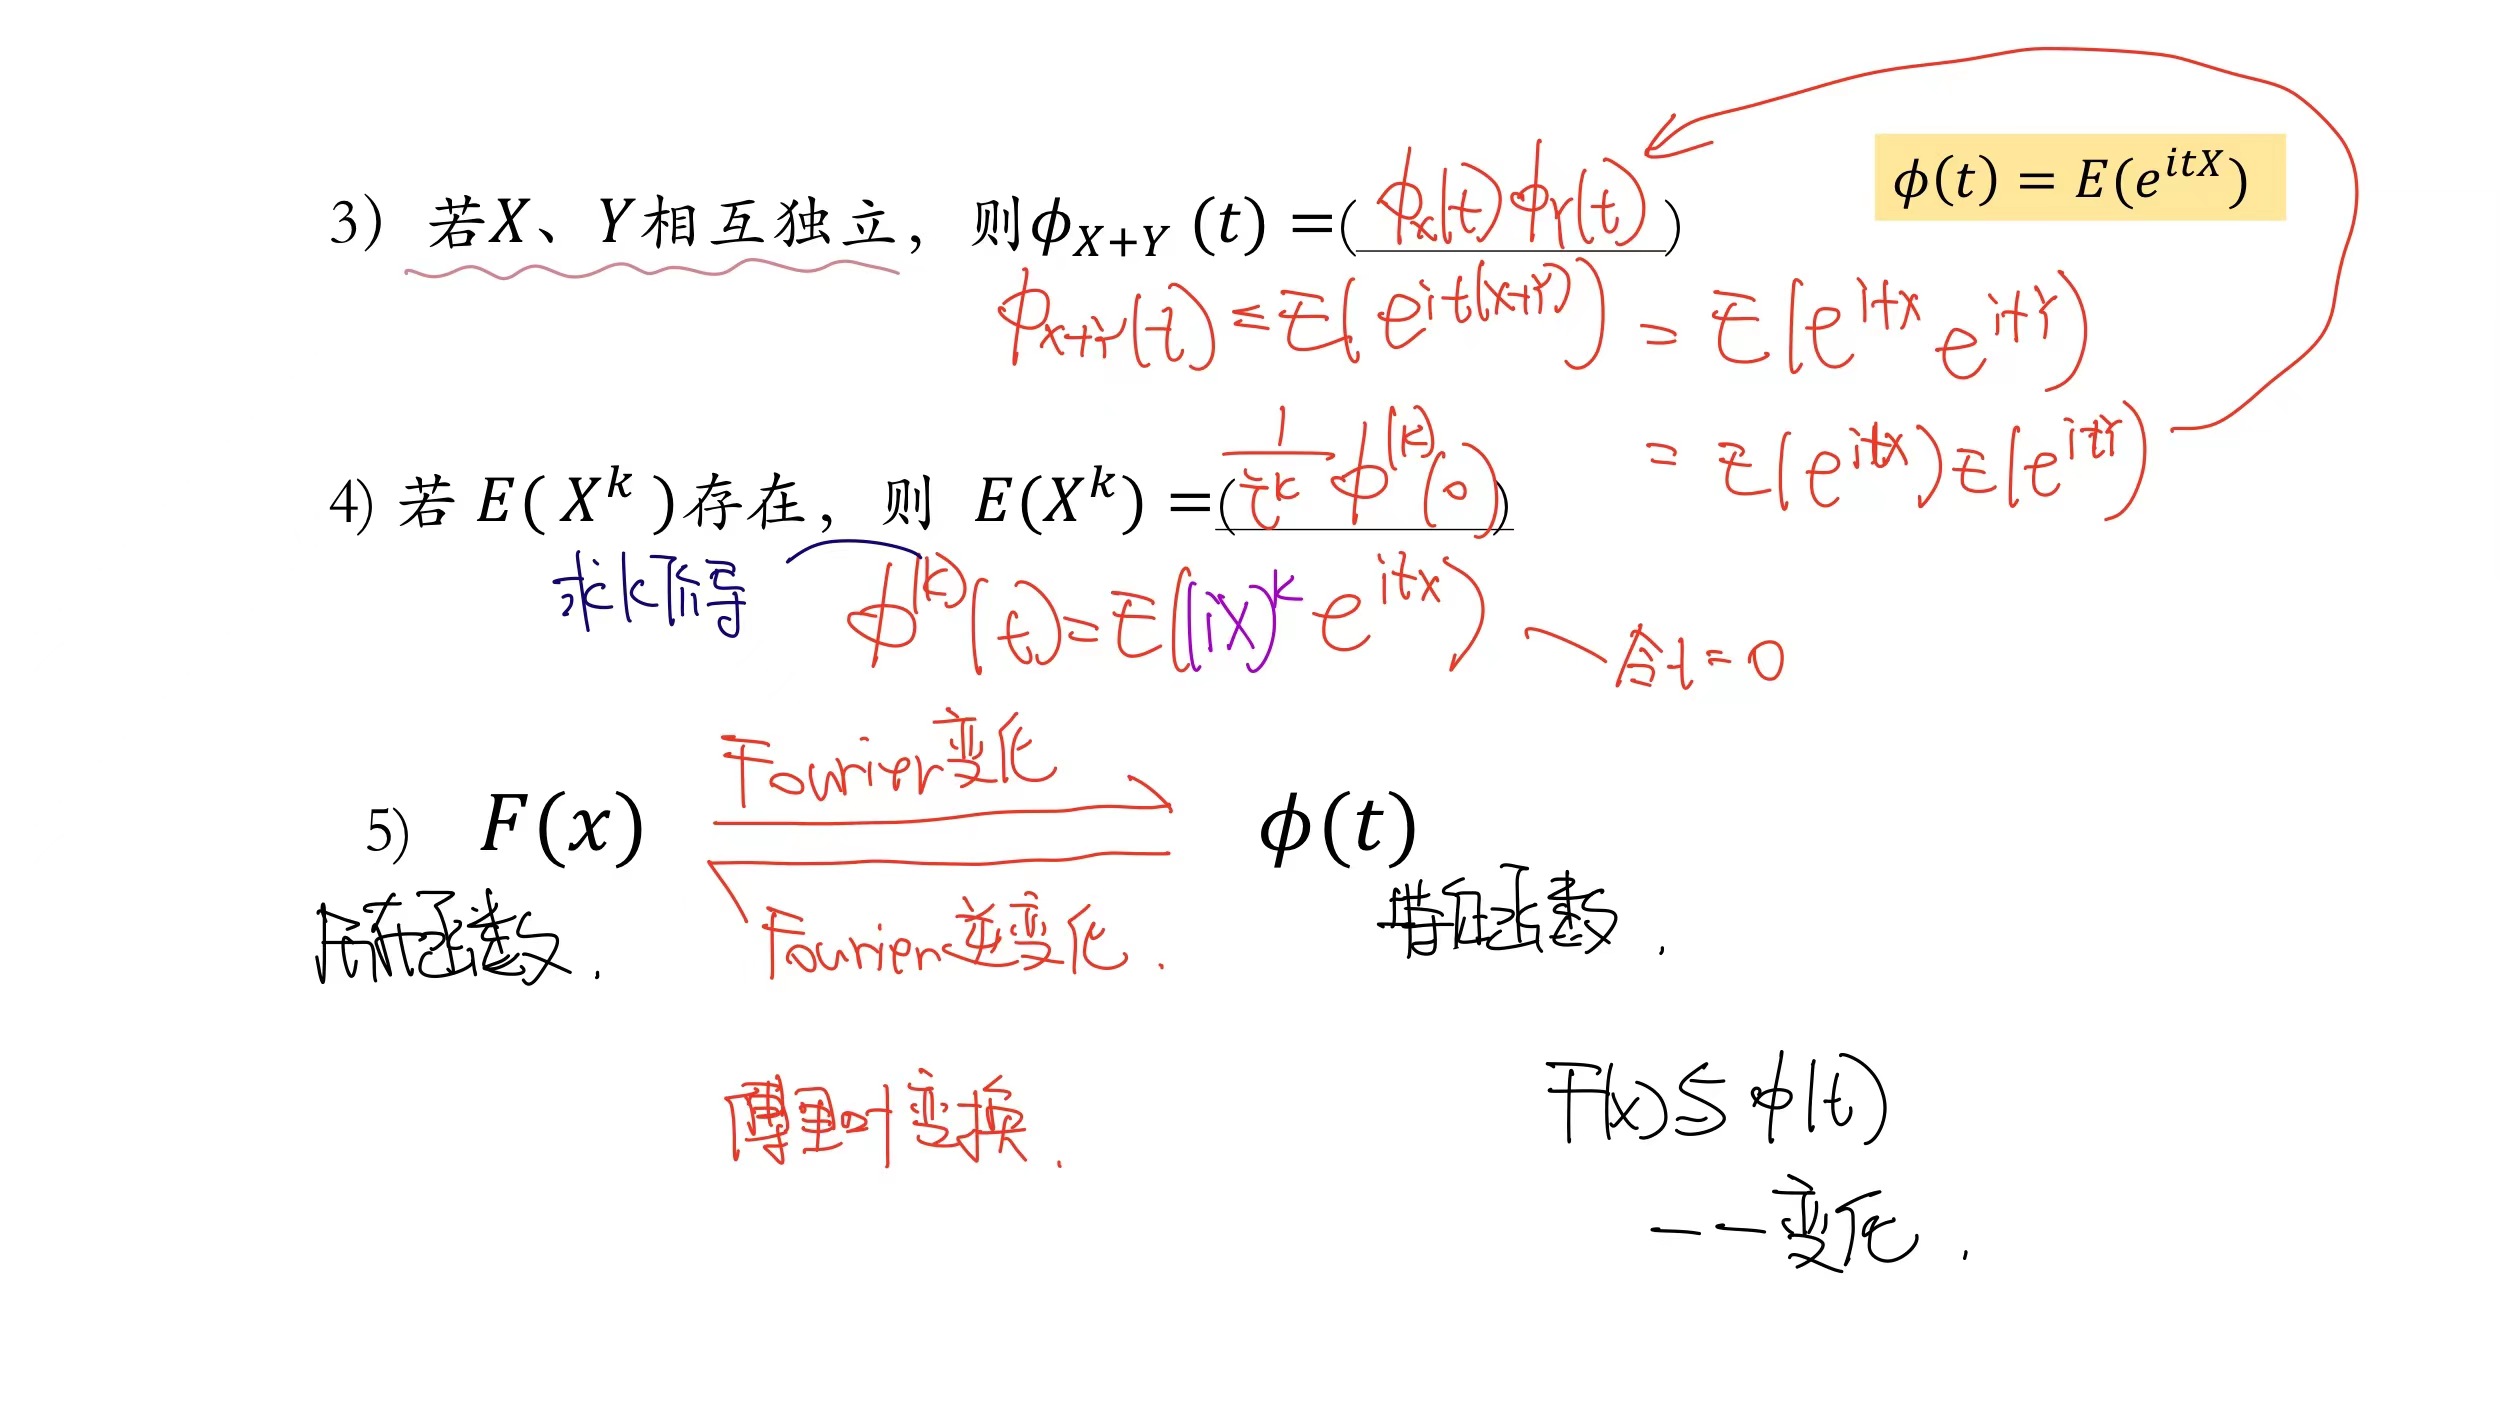 ϕ(t) = E(e^{itX})
3) 若X、Y相互独立，则ϕ_{X+Y}(t) = (ϕ_X(t)ϕ_Y(t))
ϕ_{X+Y}(t) = E(e^{it(X+Y)}) = E(e^{itX} e^{itY})
= E(e^{itX}) E(e^{itY})
4) 若E(X^k)存在，则 E(X^k) = (1/i^k ϕ^{(k)}(0))
求k阶导 ϕ^k(t) = E((iX)^k e^{itX}) 令t=0
Fourier变化
5) F(x) ϕ(t)
Fourier逆变化.
分布函数. 特征函数.
傅里叶变换.
F(x)与ϕ(t)
一一变化.